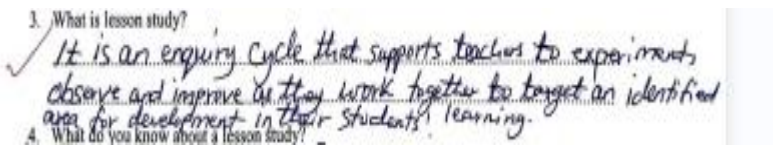 3. What is lesson study?
It is an enquiry cycle that supports teachers to experiment,
observe and improve as they work together to target an identified
area for development in their students' learning.
4. What do you know about a lesson study?